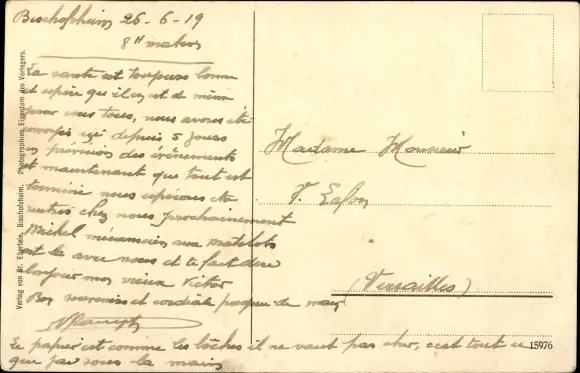 Bischofsheim 26-6-19
8H matin
La santé est toujours bonne
et espère qu'il en est de même
pour vous tous, nous avons été
envoyés ici depuis 5 jours
en prévision des évènements
et maintenant que tout est
terminé nous espérons être
rentrés chez nous prochainement
Michel mécanicien aux matelots
est là avec nous et te fait dire
bonjour mon vieux Victor
Bon souvenir et cordiale poignée de main
Le papier est comme les boches il ne vaut pas cher, c'est tout ce
que j'ai sous la main
Verlag von Br. Eberlein, Bischofsheim. Photographien Eigentum des Verlegers.
Madame Monsieur
V.
(Versailles)
15976